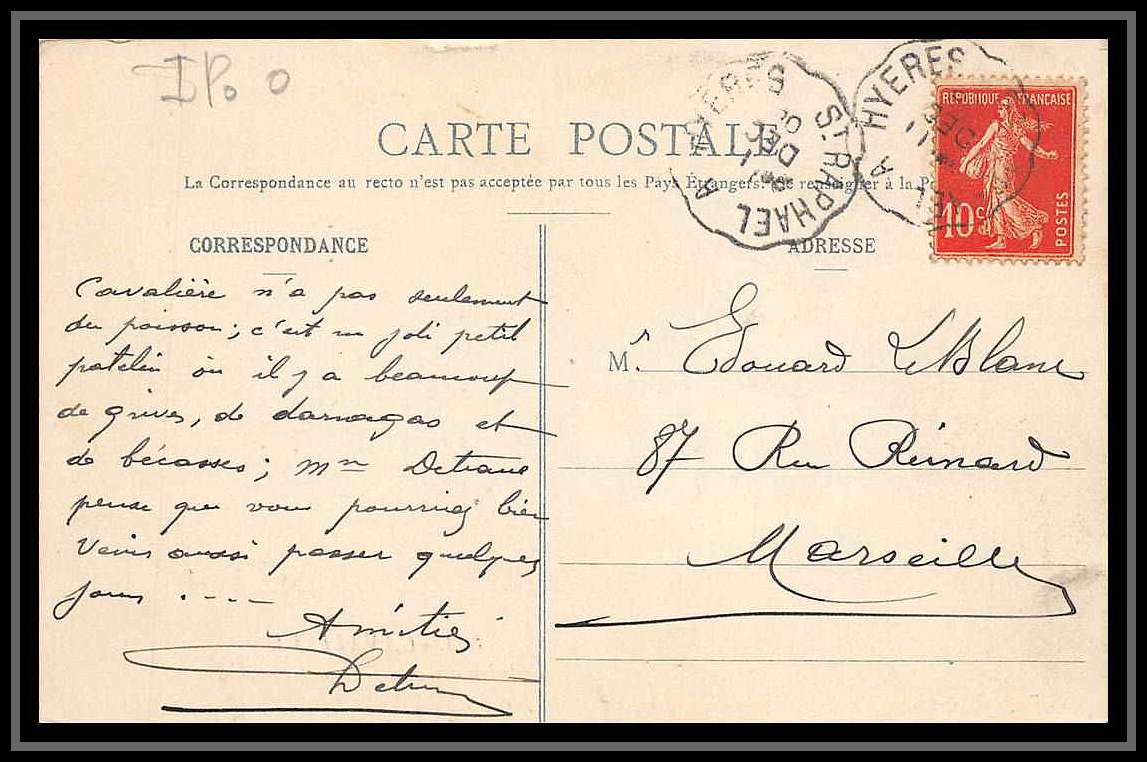 CARTE POSTALE
La Correspondance au recto n'est pas acceptée par tous les Pays Étrangers. Se renseigner à la
CORRESPONDANCE
Cavalière n'a pas seulement
du poisson; c'est un joli petit
patelin où il y a beaucoup
de grives, de darnagas et
de bécasses; Mme
pense que vous pourriez bien
venir aussi passer quelques
jours . ---
Amitiés
ST RAPHAEL A HYERES
A HYERES
REPUBLIQUE FRANÇAISE
10c
POSTES
ADRESSE
Mr. Edouard LeBlanc
87 Rue Reinard
Marseille